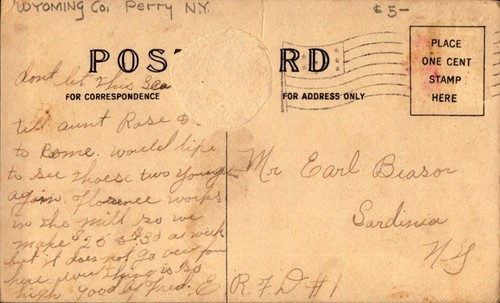 WYOMING Co, Perry N.Y.
$5-
POST CARD
FOR CORRESPONDENCE
FOR ADDRESS ONLY
PLACE
ONE CENT
STAMP
HERE
dont let this
till aunt Rose
to Rome. Would like
to see those two
again. Florence works
in the mill so we
make $25 $30 a week
but it does not go very far
here every thing is so
high good by
Mr Earl Beasor
Sardinia
N-Y
R.F.D #1